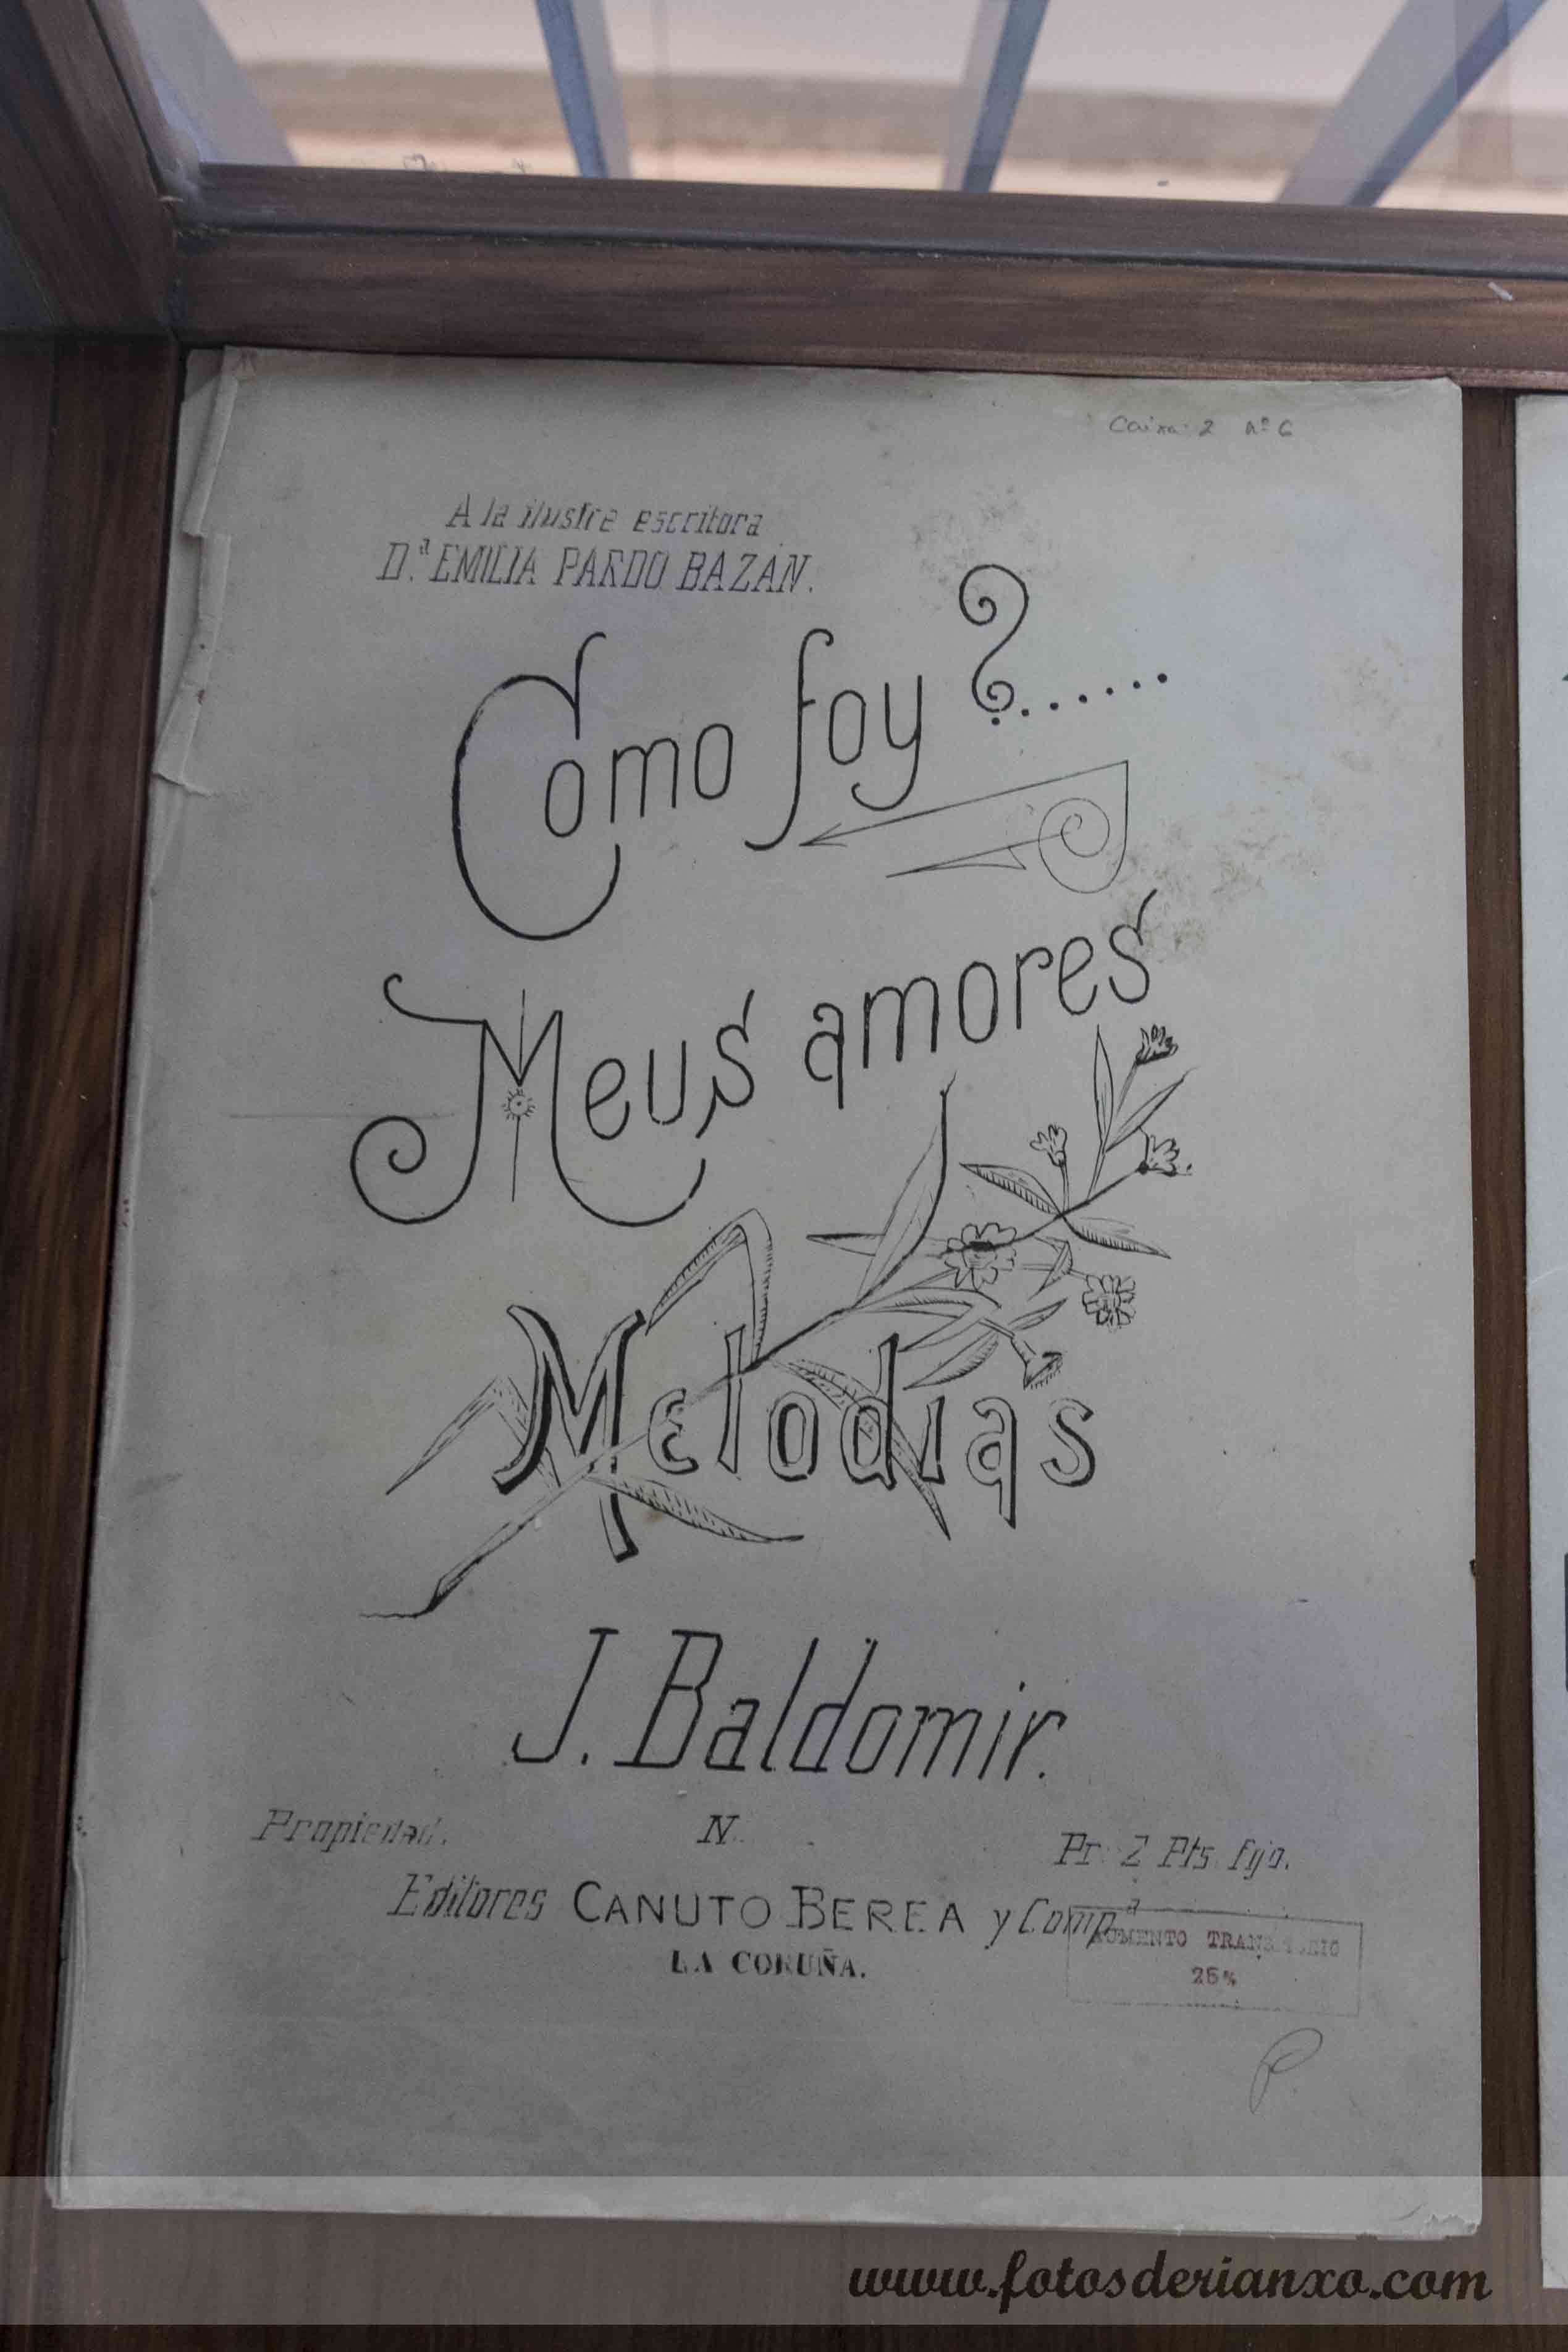 Caixa 2 nº 6
A la ilustre escritora
D.ª EMILIA PARDO BAZÁN.
Como foy?......
Meus amores
Melodías
J. Baldomir.
Propiedad. N. Pr. 2 Pts. fijo.
Editores CANUTO BEREA y Comp.ª
LA CORUÑA.
AUMENTO TRANSITORIO
25%
www.fotosderianxo.com